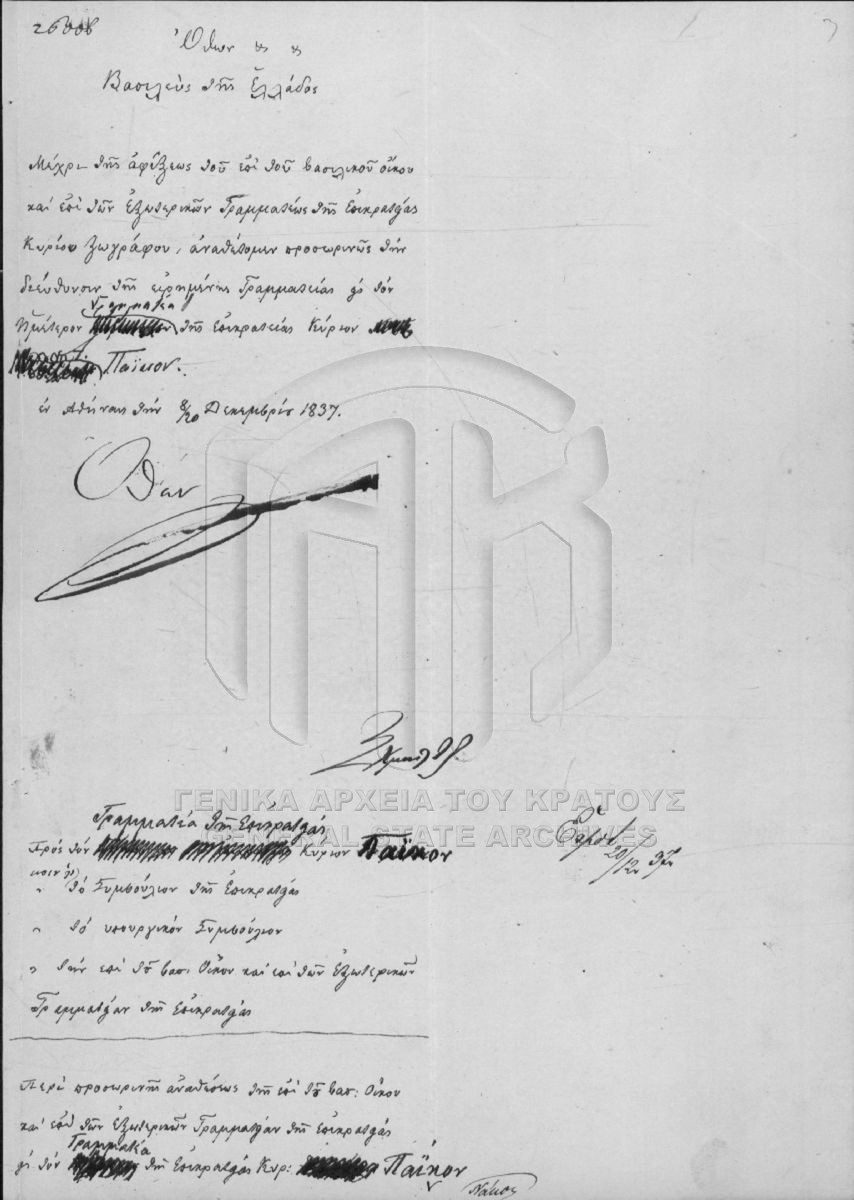 Ὄθων
Βασιλεὺς τῆς Ἑλλάδος
Μέχρι τῆς ἀφίξεως τοῦ ἐπὶ τοῦ βασιλικοῦ οἴκου
καὶ ἐπὶ τῶν Ἐξωτερικῶν Γραμματέως τῆς Ἐπικρατείας
Κυρίου Ζωγράφου, ἀναθέτομεν προσωρινῶς τὴν
διεύθυνσιν τῆς εἰρημένης Γραμματείας εἰς τὸν
Γραμματέα
Ἡμέτερον τῆς Ἐπικρατείας Κύριον
Πάϊκον.
ἐν Ἀθήναις τὴν 8/20 Δεκεμβρίου 1837.
Ὄθων
ΓΕΝΙΚΑ ΑΡΧΕΙΑ ΤΟΥ ΚΡΑΤΟΥΣ
GENERAL STATE ARCHIVES
Γραμματέα τῆς Ἐπικρατείας
Πρὸς τὸν Κύριον Πάϊκον
20/12 37
" τὸ Συμβούλιον τῆς Ἐπικρατείας
" τὸ ὑπουργικὸν Συμβούλιον
" τὴν ἐπὶ τοῦ βασ. Οἴκου καὶ ἐπὶ τῶν Ἐξωτερικῶν
Γραμματείαν τῆς Ἐπικρατείας
Περὶ προσωρινῆς ἀναθέσεως τῆς ἐπὶ τοῦ βασ: Οἴκου
καὶ ἐπὶ τῶν Ἐξωτερικῶν Γραμματείαν τῆς Ἐπικρατείας
Γραμματέα
εἰς τὸν τῆς Ἐπικρατείας Κύρ: Πάϊκον